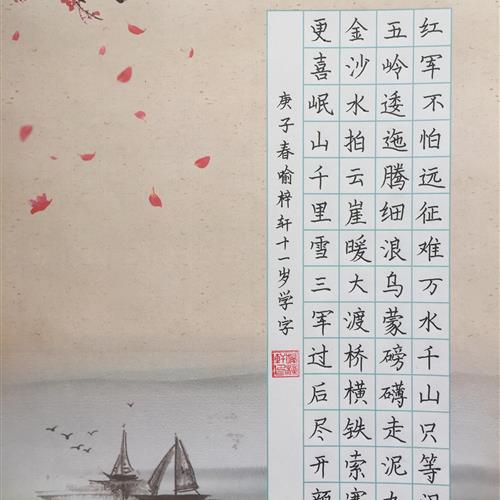 红军不怕远征难万水千山只等
五岭逶迤腾细浪乌蒙磅礴走泥丸
金沙水拍云崖暖大渡桥横铁索寒
更喜岷山千里雪三军过后尽开颜
庚子春喻梓轩十一岁学字